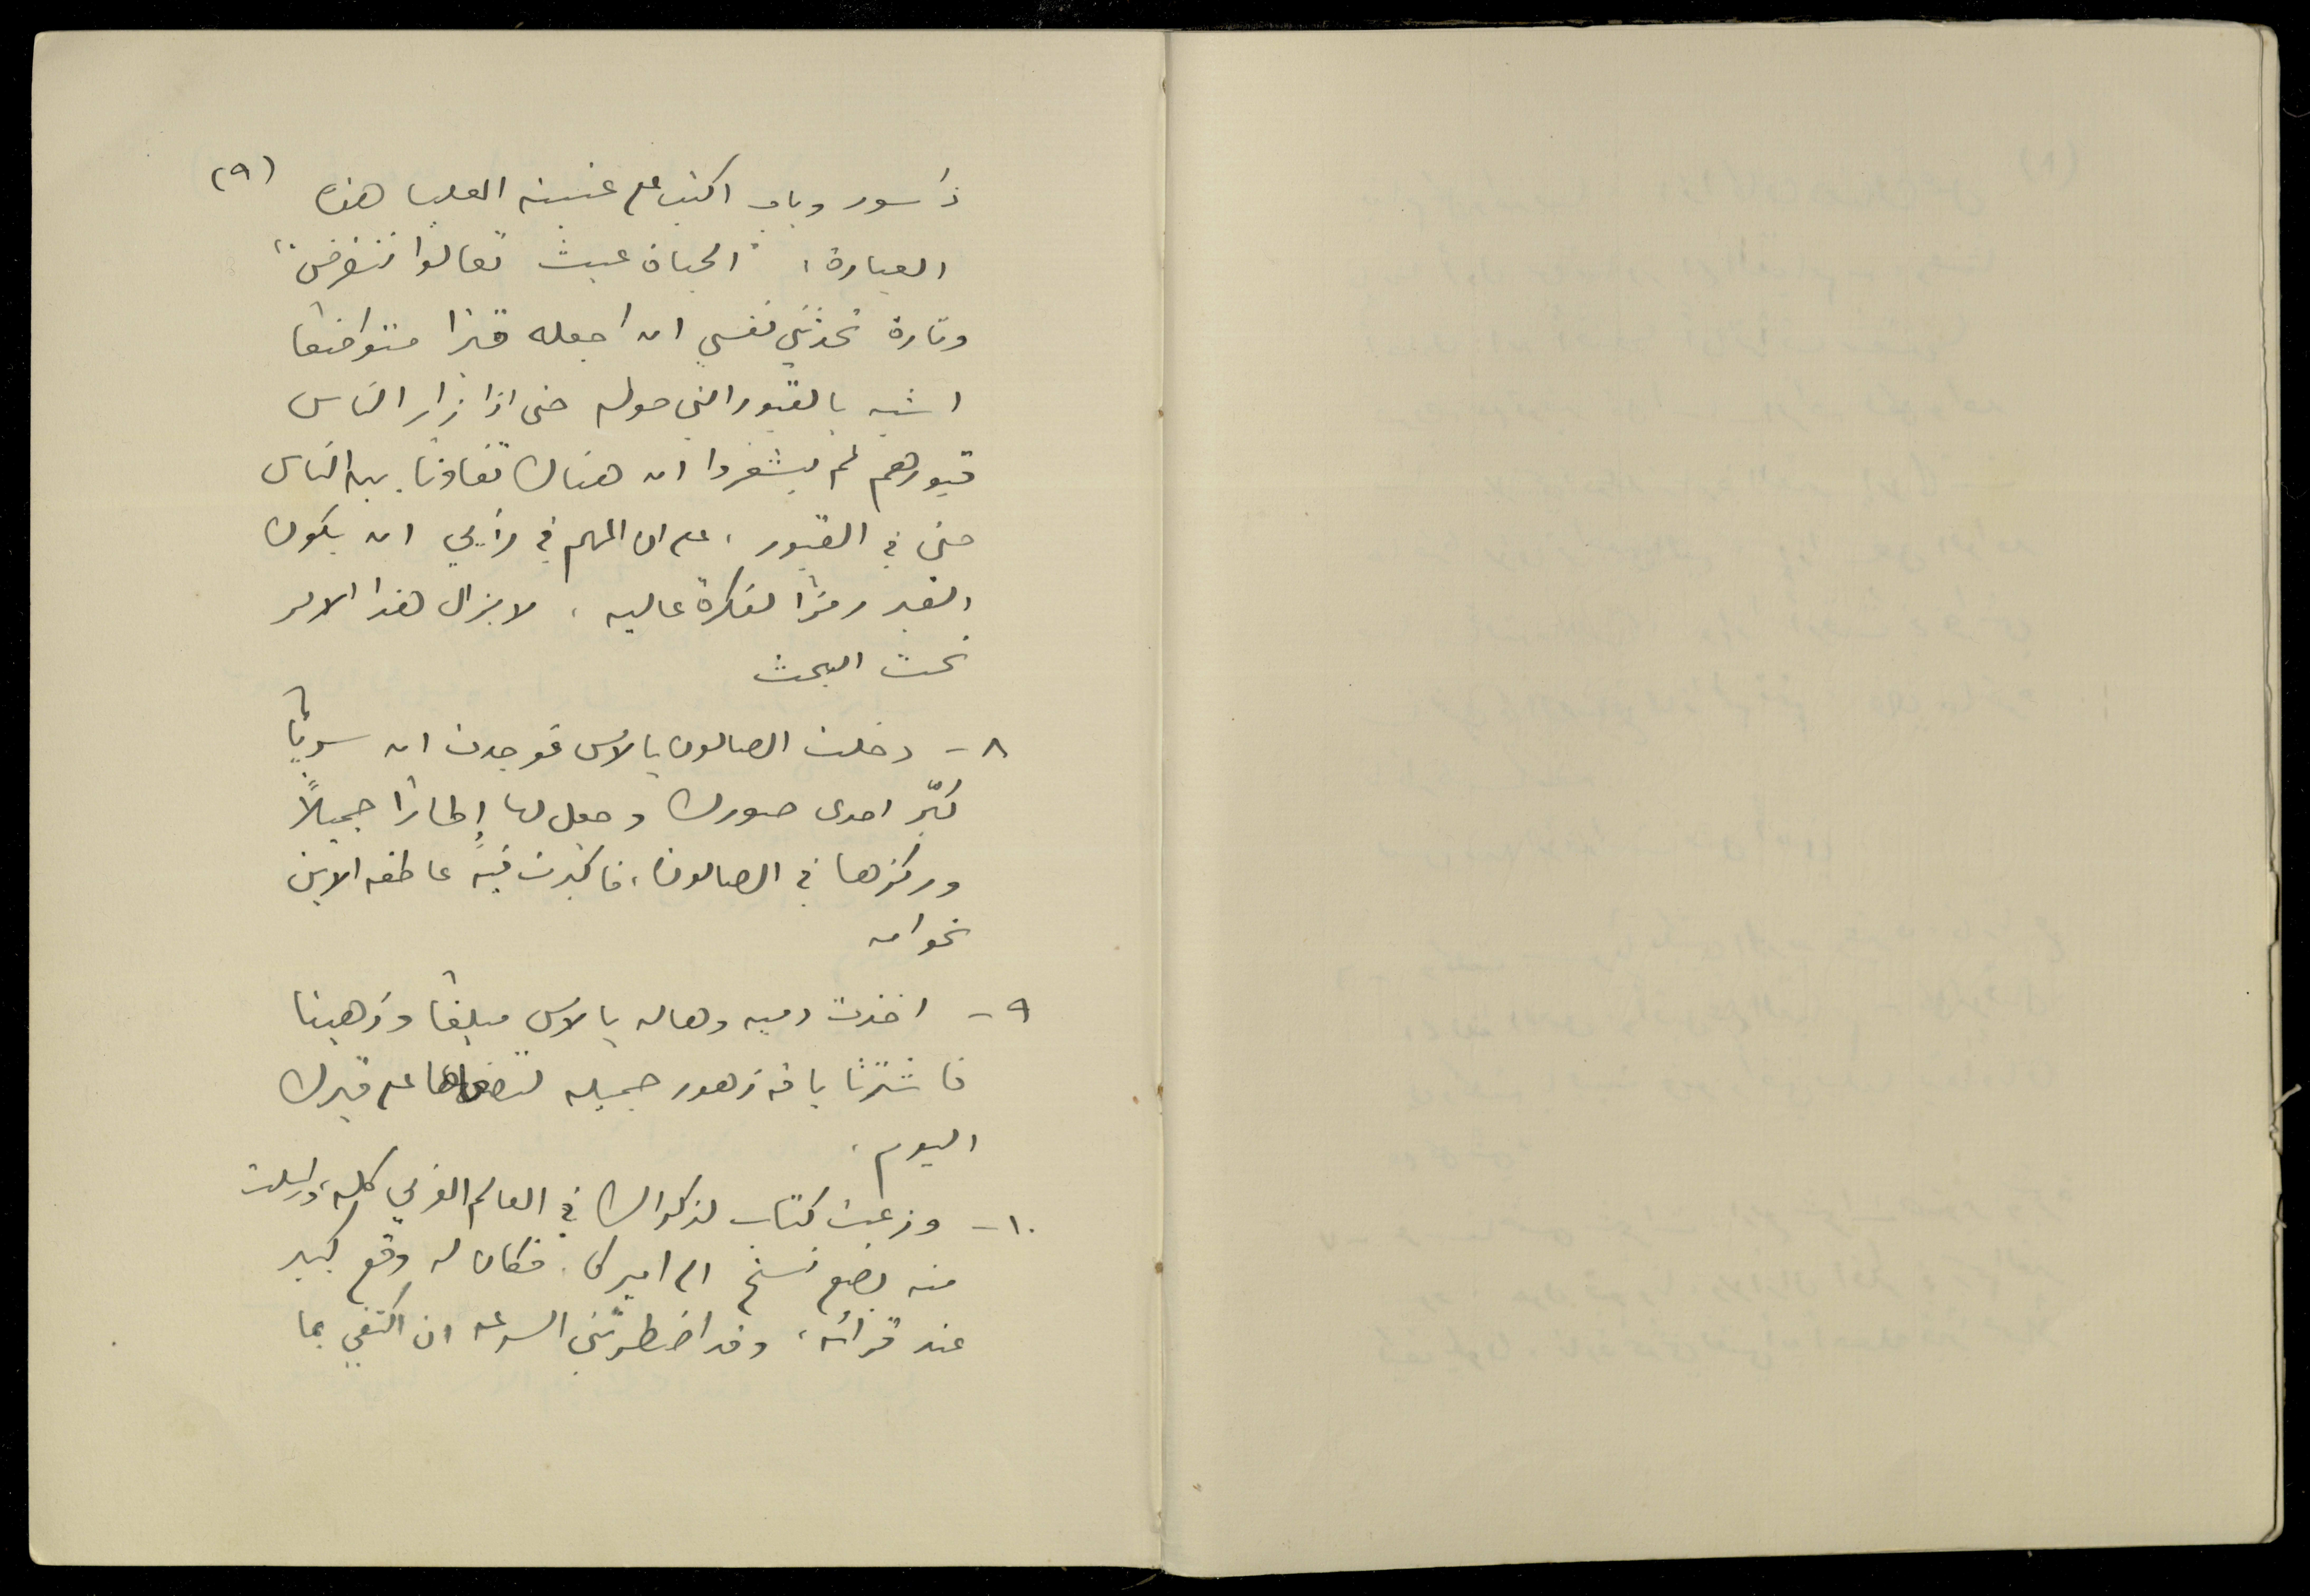 (٩)
ذا سور وباب اكتب على عتبته العليا هذه
العبارة: "الحياة عبث تعالوا ننقرض"
وتارة تحدثني نفسي ان اجعله قبرا متواضعا
اشبه بالقبور التي حوله حتى اذا زار الناس
قبورهم لم يشعروا ان هناك تفاوتا بين الناس
حتى في القبور، على ان المهم في رأيي ان يكون
القبر رمزا لفكرة عاليه. لا يزال هذا الامر
تحت البحث
٨ - دخلت الصالون بالامس فوجدت ان سريا
كبّر احدى صورك وجعل لها إطارا جميلاً
وركزها في الصالون، فاكبرت فيه عاطفه الابن
نحو امه
٩ - اخذت دميه وهاله بالامس مبلغا وذهبتا
فاشترتا باقه زهور جميله لتضعاها على قبرك
اليوم.
١٠ - وزعت كتاب لذكراك في العالم العربي كله، وارسلت
منه بضع نسخ الى اميركا. فكان له وقع كبير
عند قرائه، وقد اضطرتني السرعه ان اكتفي بما